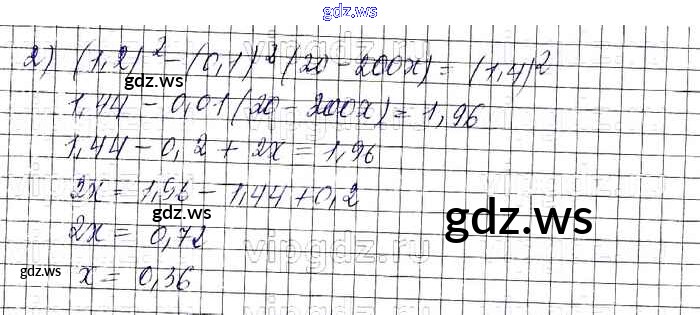 gdz.ws
2) (1,2)² - (0,1)² (20 - 200x) = (1,4)²
1,44 - 0,01 (20 - 200x) = 1,96
1,44 - 0,2 + 2x = 1,96
2x = 1,96 - 1,44 + 0,2
gdz.ws
gdz.ws
2x = 0,72
vipgdz.ru
gdz.ws
x = 0,36
gdz.ws